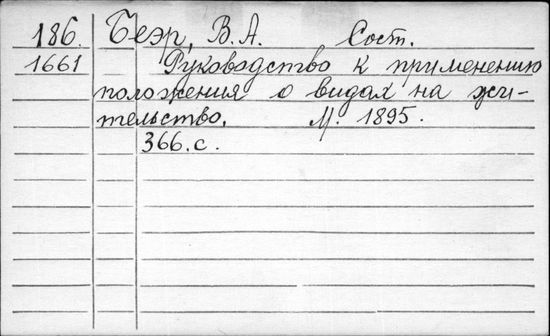 186. Беэр, В. А. Сост.
1661 Руководство к применению
положения о видах на жи-
тельство. М. 1895.
366. с.